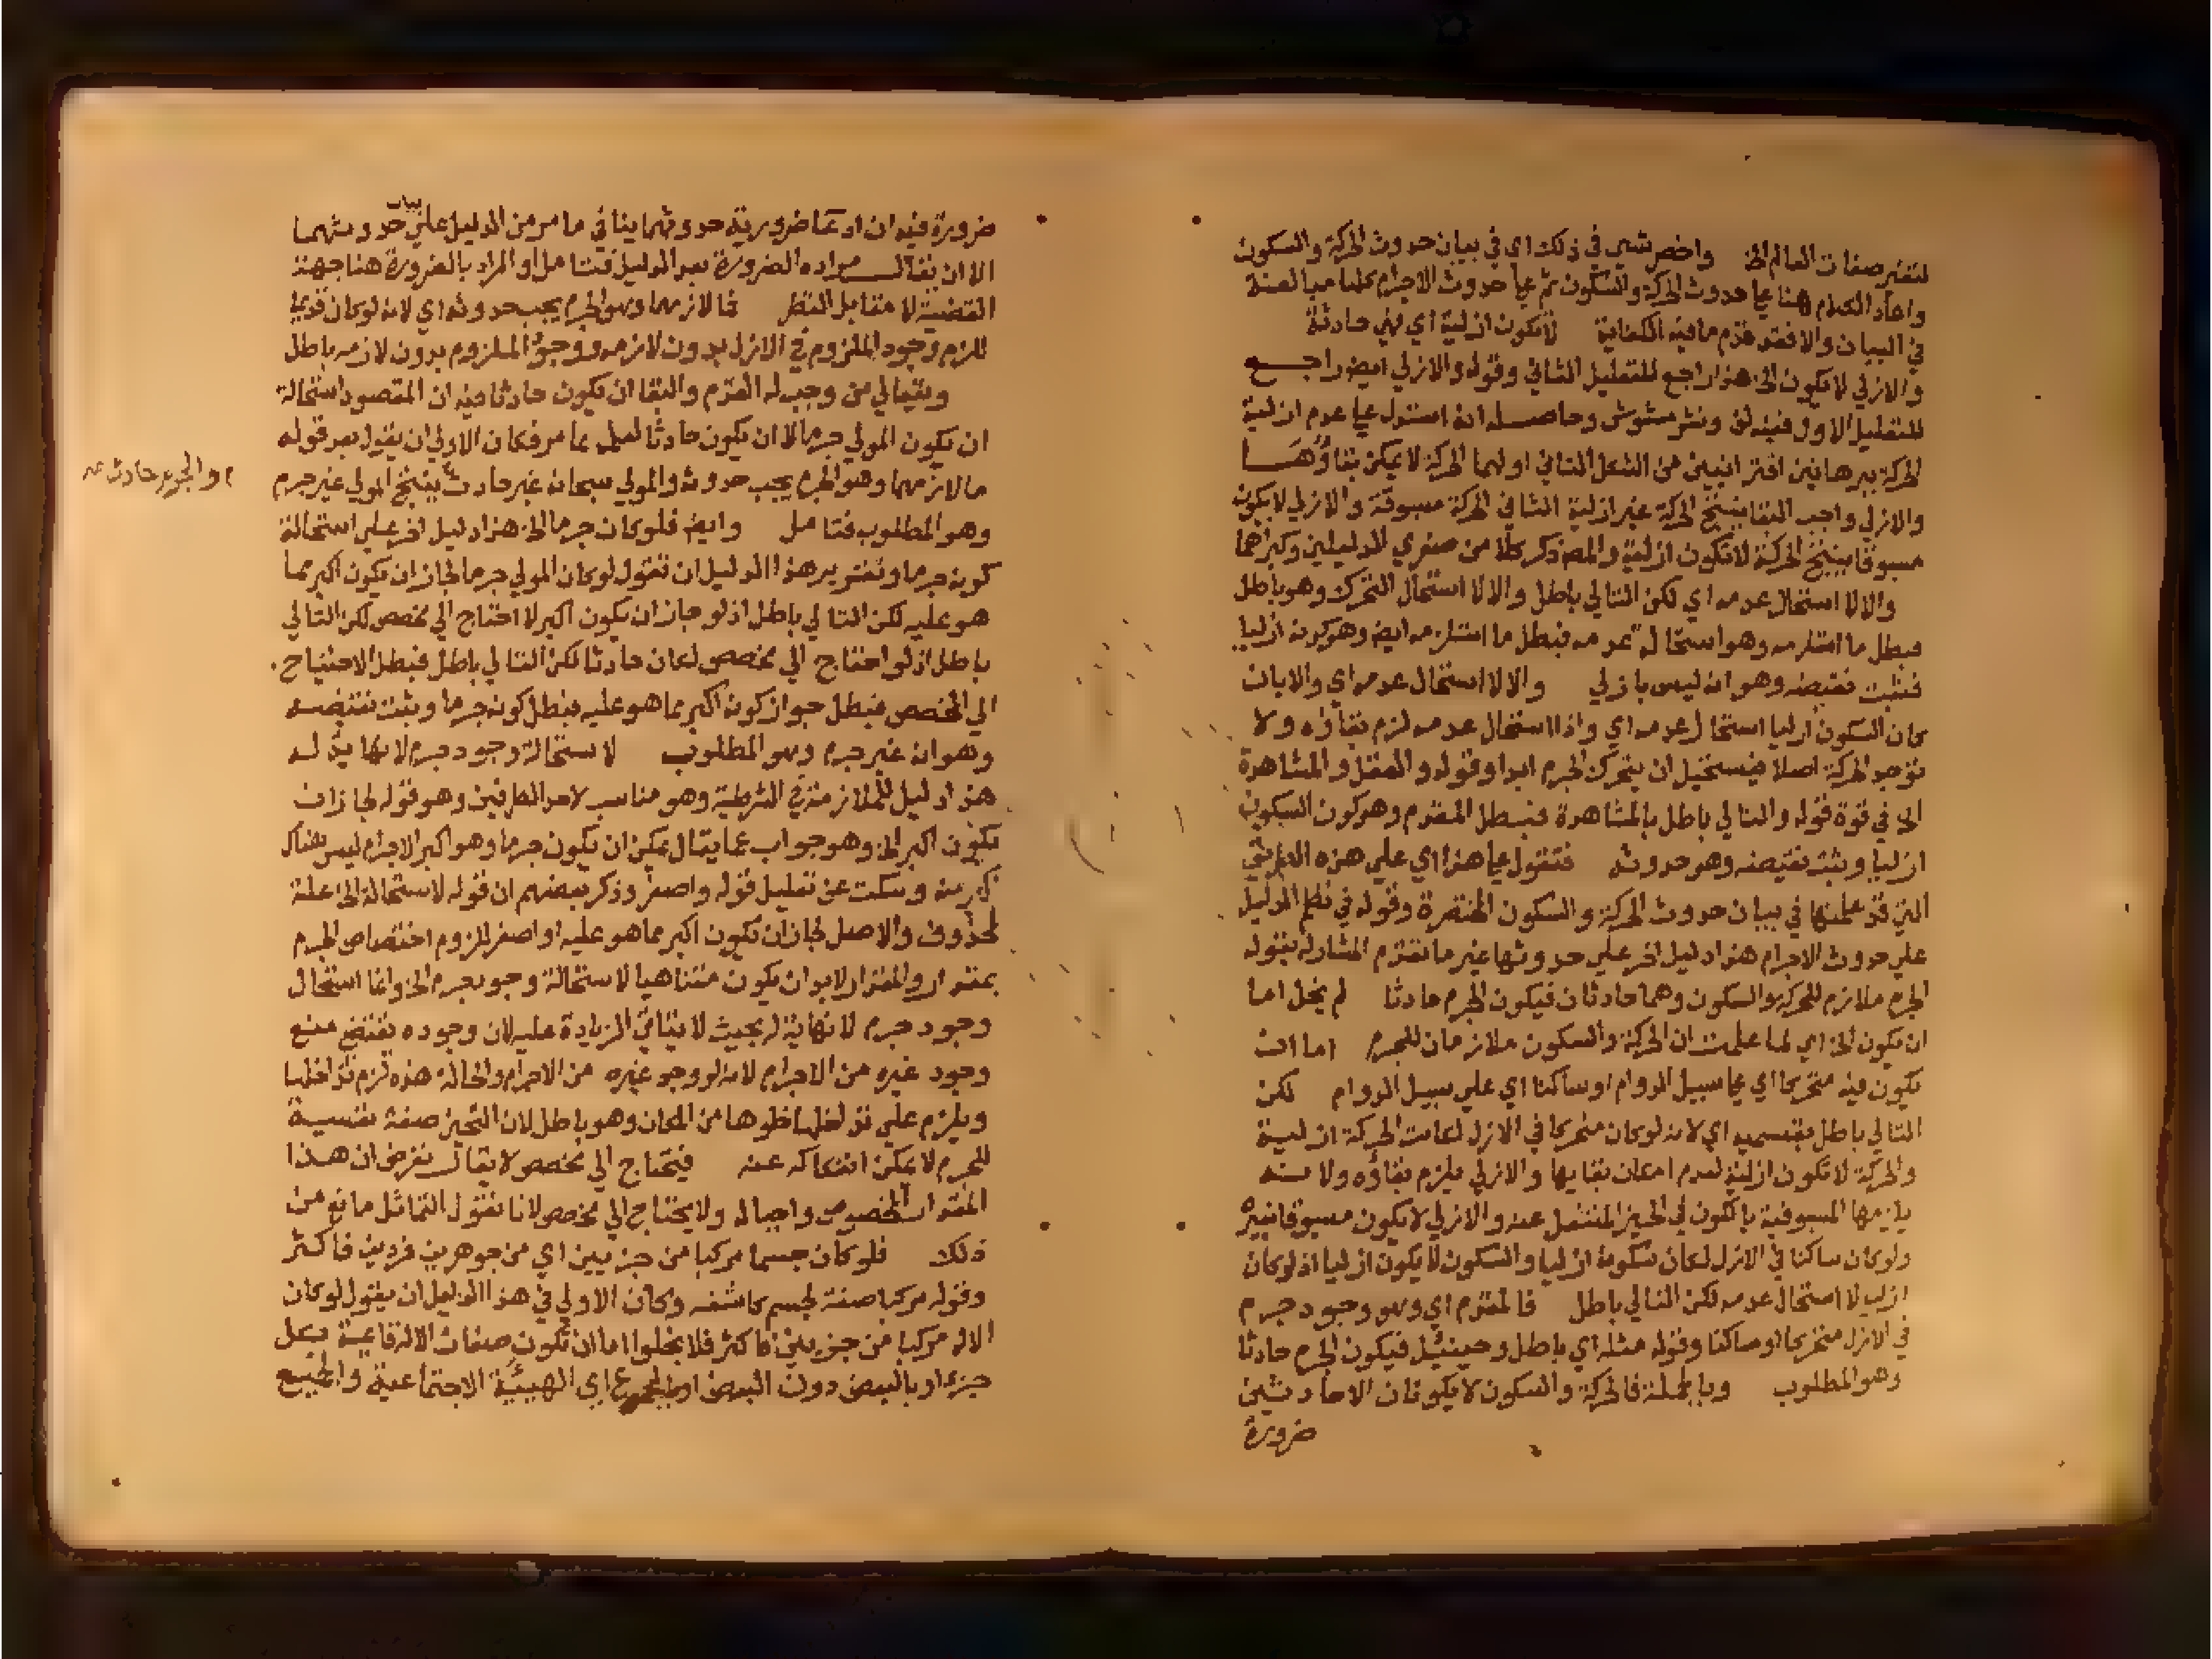 لتغير صفات العالم الخ واخص شيء في ذلك اي في بيان حدوث الحركة والسكون
واعاد الكلام هنا على حدوث الحركة والسكون ثم على حدوث الاجرام
في البيان والا فقد قدم ما فيه الكفاية لا تكون ازلية اي فهي حادثة
والازلي لا يكون الخ هذا راجع للتعليل الثاني وقوله والازلي ايض راجع
للتعليل الاول ففيه لف ونشر مشوش وحاصله انه استدل على عدم ازلية
الحركة ببرهانين اقترانيين من الشكل الثاني اولهما الحركة لا يمكن بقاؤها
والازلي واجب البقا ينتج الحركة غير ازلية الثاني الحركة مسبوقة والازلي لا يكون
مسبوقا ينتج الحركة لا تكون ازلية والمص ذكر كلا من صغري الدليلين وكبراهما
والا لا استحال عدمه اي لكن التالي باطل والا لا استحال التحرك وهو باطل
فبطل ما استلزمه وهو استحالة عدمه فبطل ما استلزمه ايض وهو كونه ازليا
فثبت نقيضه وهو انه ليس بازلي والا لا استحال عدمه اي والا بان
كان السكون ازليا استحال عدمه اي واذا استحال عدمه لزم بقاؤه ولا
توجد الحركة اصلا فيستحيل ان يتحرك الجرم ابدا وقوله والعقل والمشاهدة
الخ في قوة قوله والتالي باطل بالمشاهدة فبطل المقدم وهو كون السكون
ازليا وثبت نقيضه وهو حدوثه فتقول على هذا اي على هذه الطريق
التي قد علمتها في بيان حدوث الحركة والسكون المختصرة وقوله في نظم الدليل
على حدوث الاجرام هذا دليل اخر على حدوثها غير ما تقدم المشار له بقوله
الجرم ملازم للحركة والسكون وهما حادثان فيكون الجرم حادثا لم يخل اما
ان يكون الخ اي لما علمت ان الحركة والسكون ملازمان للجرم اما ان
يكون فيه متحركا اي على سبيل الدوام او ساكنا اي على سبيل الدوام لكن
التالي باطل بقسميه اي لانه لو كان متحركا في الازل لكانت الحركة ازلية
والحركة لا تكون ازلية لعدم امكان بقايها والازلي يلزم بقاؤه ولانه
يلزمها المسبوقية بالكون في الحيز المنتقل عنه والازلي لا يكون مسبوقا بغيره
ولو كان ساكنا في الازل لكان سكونه ازليا والسكون لا يكون ازليا اذ لو كان
ازليا لا استحال عدمه لكن التالي باطل فالمقدم اي وهو وجود جرم
في الازل متحركا او ساكنا وقوله مثله اي باطل وحينئذ فيكون الجرم حادثا
وهو المطلوب وبالجملة فالحركة والسكون لا يكونان الا حادثين
ضرورة
ضرورة فيه ان ادعا ضرورية حدوثهما ينافي ما مر من الدليل على بيان حدوثهما
الا ان يقال مراده الضرورة بعد الدليل فتامل او المراد بالضرورة هنا جهة
القضية لا مقابل النظر فما لازمهما وهو الجرم يجب حدوثه اي لانه لو كان قديما
للزم وجود الملزوم في الازل بدون لازمه ووجود الملزوم بدون لازمه باطل
وتعالي من وجب له القدم والبقا ان يكون حادثا فيه ان المقصود استحالة
ان يكون المولي جرما لا ان يكون حادثا لعلمه مما مر فكان الاولي ان يقول بعد قوله
ما لازمهما وهو الجرم يجب حدوثه والمولي سبحانه غير حادث ينتج المولي غير جرم
ا والجرم حادث صح
وهو المطلوب فتامل وايض فلو كان جرما الخ هذا دليل اخر على استحالة
كونه جرما وتقرير هذا الدليل ان تقول لو كان المولي جرما لجاز ان يكون اكبر مما
هو عليه لكن التالي باطل اذ لو جاز ان يكون اكبر لا احتاج الي مخصص لكن التالي
باطل اذ لو احتاج الي مخصص لكان حادثا لكن التالي باطل فبطل الاحتياج
الي المخصص فبطل جواز كونه اكبر مما هو عليه فبطل كونه جرما وثبت نقيضه
وهو انه غير جرم وهو المطلوب لاستحالة وجود جرم لا نهاية له
هذا دليل للملازمة في الشرطية وهو مناسب لاحد الطرفين وهو قوله لجاز ان
يكون اكبر الخ وهو جواب عما يقال يمكن ان يكون جرما وهو اكبر الاجرام ليس هناك
اكبر منه وسكت عن تعليل قوله واصغر وذكر بعضهم ان قوله لاستحالة الخ علة
لمحذوف والاصل لجاز ان يكون اكبر مما هو عليه او اصغر للزوم اختصاص الجرم
بمقدار والمقدار لابد ان يكون متناهيا لاستحالة وجود جرم الخ وانما استحال
وجود جرم لا نهاية له بحيث لا يتاتي الزيادة عليه لان وجوده يقتضي منع
وجود غيره من الاجرام لانه لو وجد غيره من الاجرام والحالة هذه لزم تداخلها
ويلزم على تداخلها خلوها من المكان وهو باطل لان التحيز صفة نفسية
للجرم لا يمكن انفكاكه عنه فيحتاج الي مخصص لا يقال نفرض ان هذا
المقدار المخصوص واجبا له ولا يحتاج الي مخصص لانا نقول التماثل مانع من
ذلك فلو كان جسما مركبا من جزيين اي من جوهرين فردين فاكثر
وقوله مركبا صفة لجسم كاشفه وكان الاولي في هذا الدليل ان يقول لو كان
الاله مركبا من جزيين فاكثر فلا يخلوا اما ان تكون صفات الاله قايمة بكل
جزء او بالبعض دون البعض او بالمجموع اي الهيئة الاجتماعية والجميع